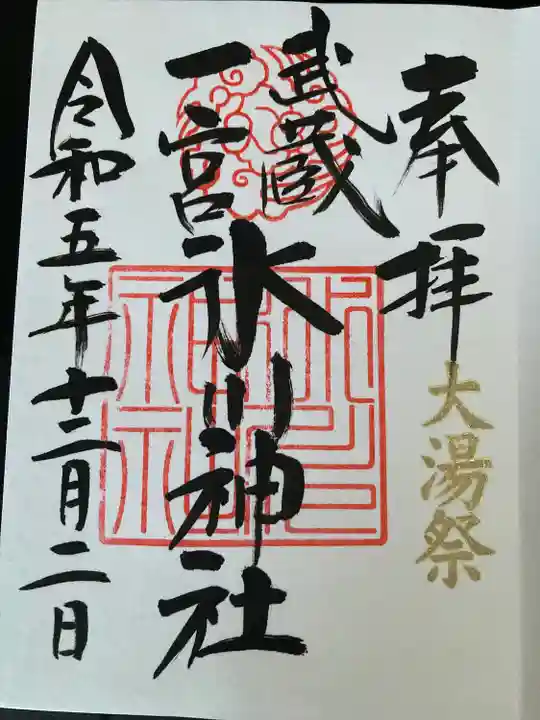 奉拝
大湯祭
武蔵
一宮氷川神社
令和五年十二月二日